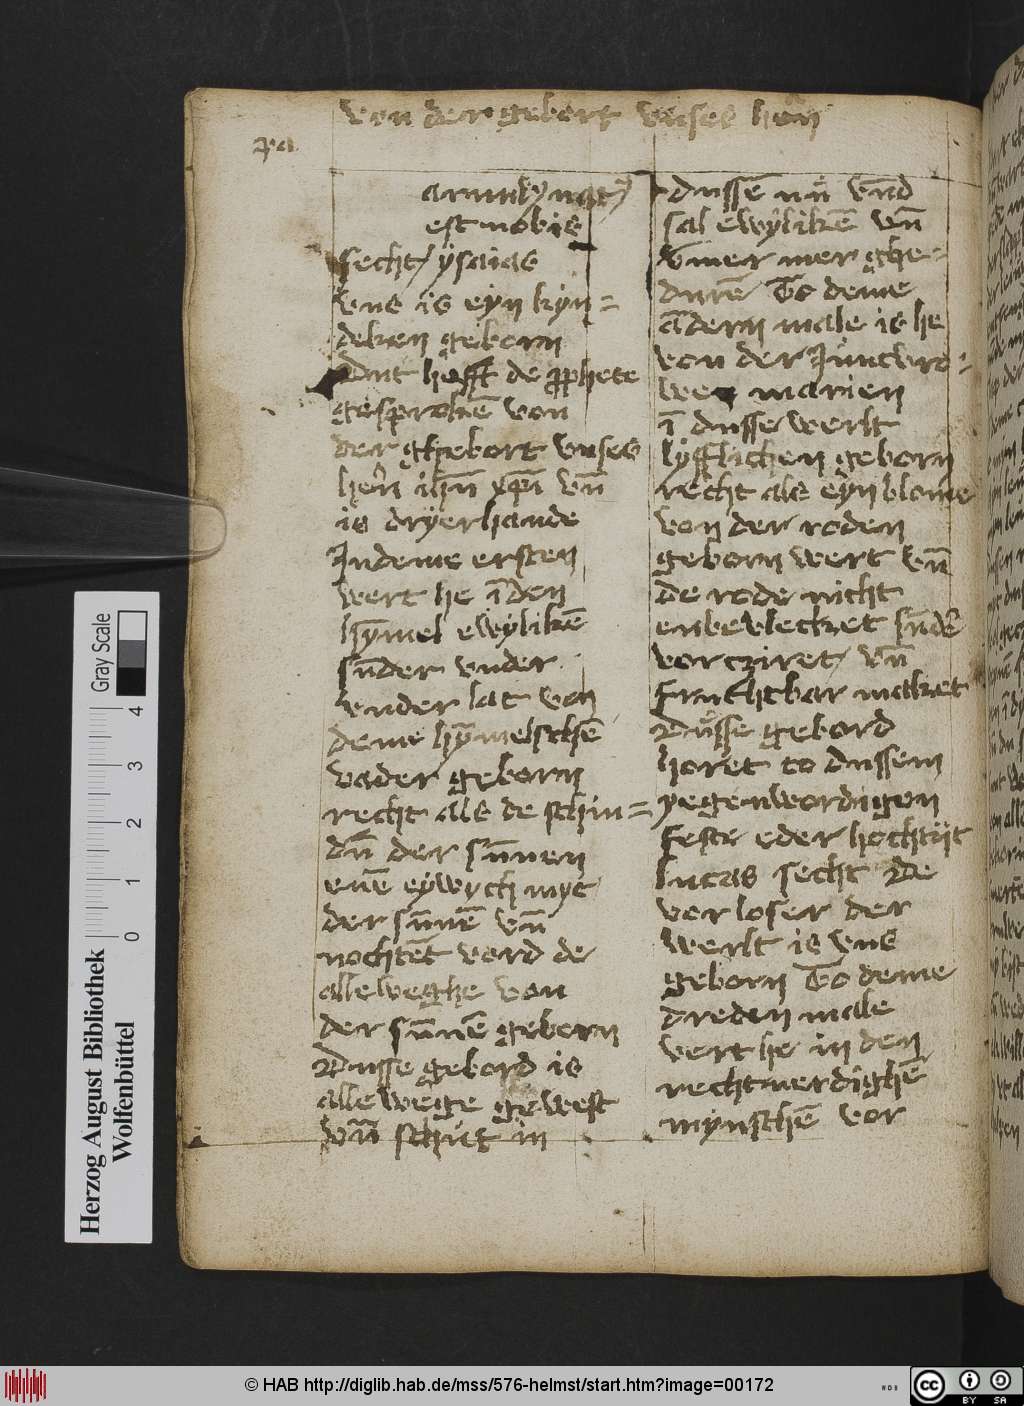 von der gebort vnses hẽn
aruulꝰ nat9
est nobis
secht / ysaias
vns is eyn kyn=
deken geborn
Dut hefft de ꝓphete
gesprokẽ von
der ghebort vnses
hẽrn ihũ xp̃i vñ
is dryerhande
Indeme ersten
wert he ĩ den
hỹmel ewyliken̄
sũder vnder
vnder lat von
deme hỹmelschẽ
vader geborn
recht als de schin=
dẽ der sũnnen
euẽ eywych myt
der sũnnẽ vñ
nochtẽt vord de
alleweghe von
der sũnnẽ geborn
Dusse gebord is
alle wege gewest
vñ schut in
dussẽ nũ vnd
sal ewylikẽ vñ
vmer mer ghe=
durẽ To deme
ãdern male is he
von der Juncvro=
wen marien
ĩ dusse werlt
lyfflichen geborn
recht als eyn blome
von der roden
geborn wert vñ
de rode nicht
enbevlecket sũder
vorcziret / vñ
fruchtbar maket
Dusse gebord
horet to dussem
yegenwordigon
feste eder hochtijt
lucas secht De
vorloser der
werlt is vns
geborn To deme
dreden male
vert he in den
rechtuerdighẽ
mynschẽ vor
Herzog August Bibliothek
Wolfenbüttel
Gray Scale
0 1 2 3 4
© HAB http://diglib.hab.de/mss/576-helmst/start.htm?image=00172
WDB
cc BY SA